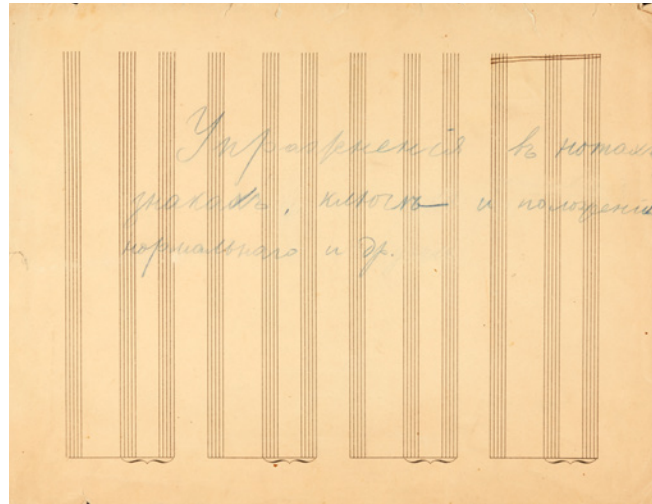 Упражненія въ нотахъ
знакахъ, ключѣ и положеніи
нормальнаго и др.